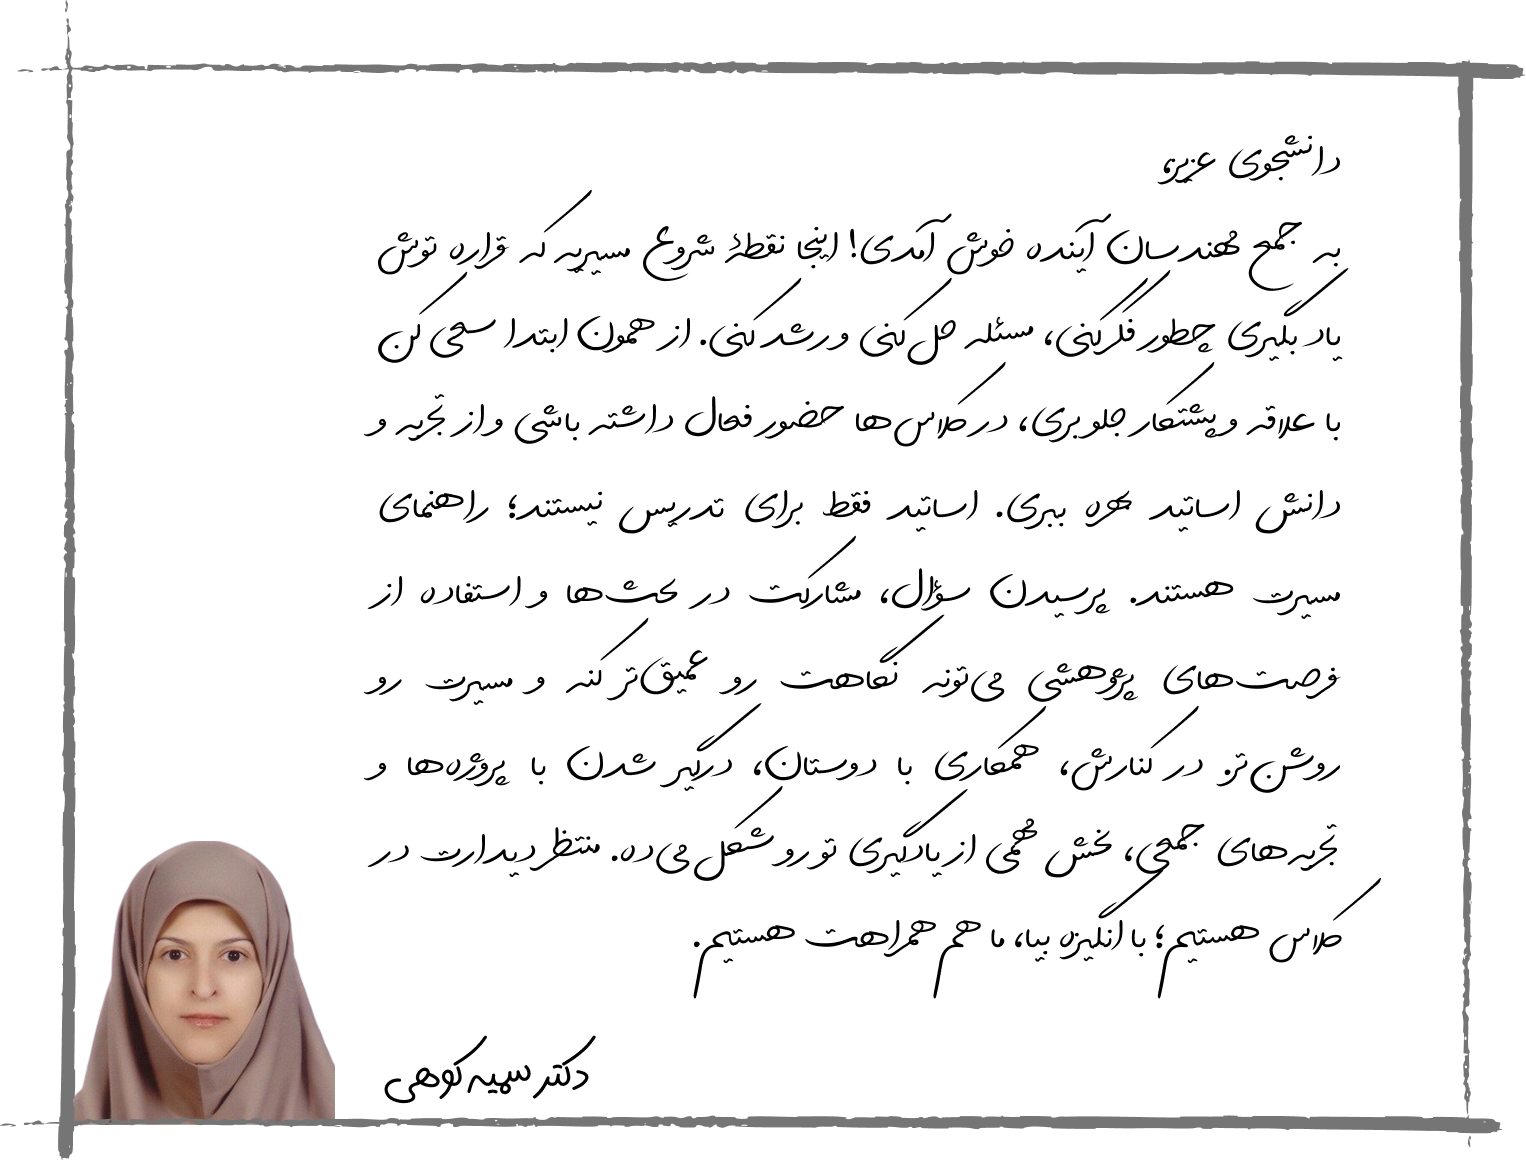 دانشجوی عزیز،
به جمع مهندسان آینده خوش آمدی! اینجا نقطهٔ شروع مسیریه که قراره توش
یاد بگیری چطور فکر کنی، مسئله حل کنی و رشد کنی. از همون ابتدا سعی کن
با علاقه و پشتکار جلو بری، در کلاس‌ها حضور فعال داشته باشی و از تجربه و
دانش اساتید بهره ببری. اساتید فقط برای تدریس نیستند؛ راهنمای
مسیرت هستند. پرسیدن سؤال، مشارکت در بحث‌ها و استفاده از
فرصت‌های پژوهشی می‌تونه نگاهت رو عمیق‌تر کنه و مسیرت رو
روشن‌تر. در کنارش، همکاری با دوستان، درگیر شدن با پروژه‌ها و
تجربه‌های جمعی، بخش مهمی از یادگیری تو رو شکل می‌ده. منتظر دیدارت در
کلاس هستیم؛ با انگیزه بیا، ما هم همراهت هستیم.
دکتر سمیه کوهی